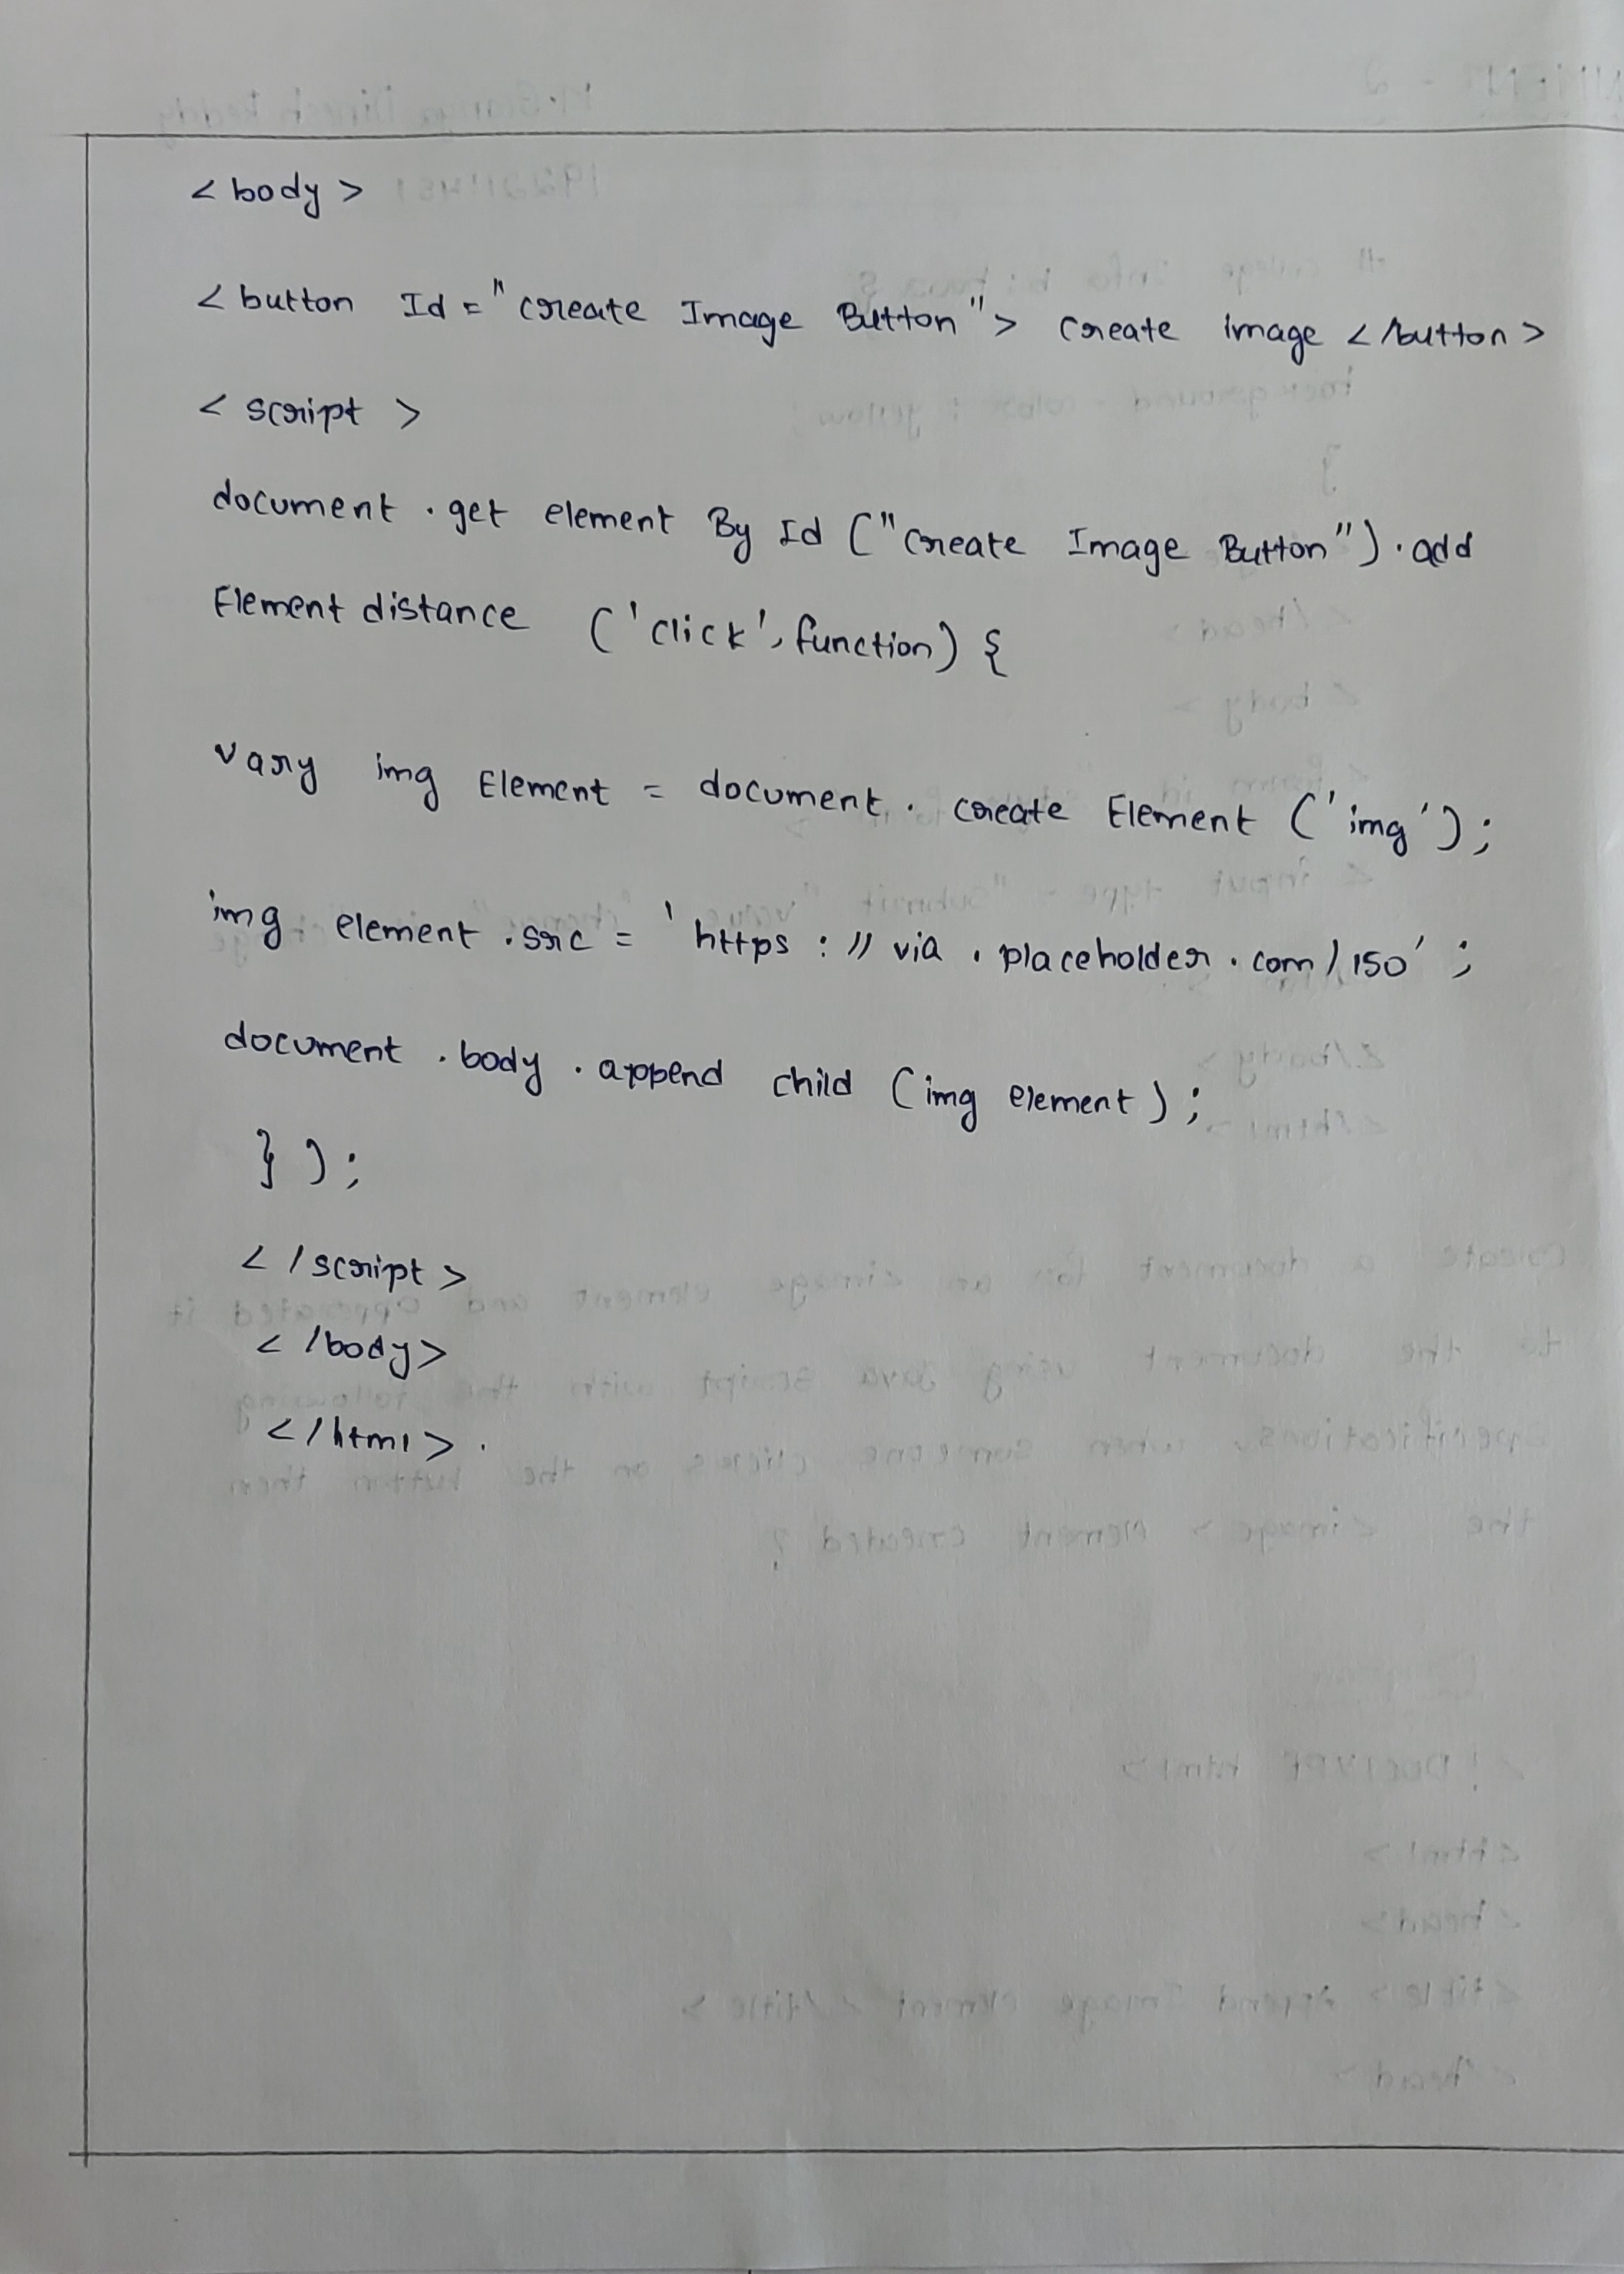 < body >
< button Id = "create Image Button" > create image < /button >
< script >
document . get element By Id ("create Image Button") . add
Element distance ('click', function) {
vary img Element = document . create Element ('img') ;
img element . src = 'https : // via . placeholder . com / 150' ;
document . body . append child (img element) ;
} ) ;
< / script >
< /body >
< / html > .